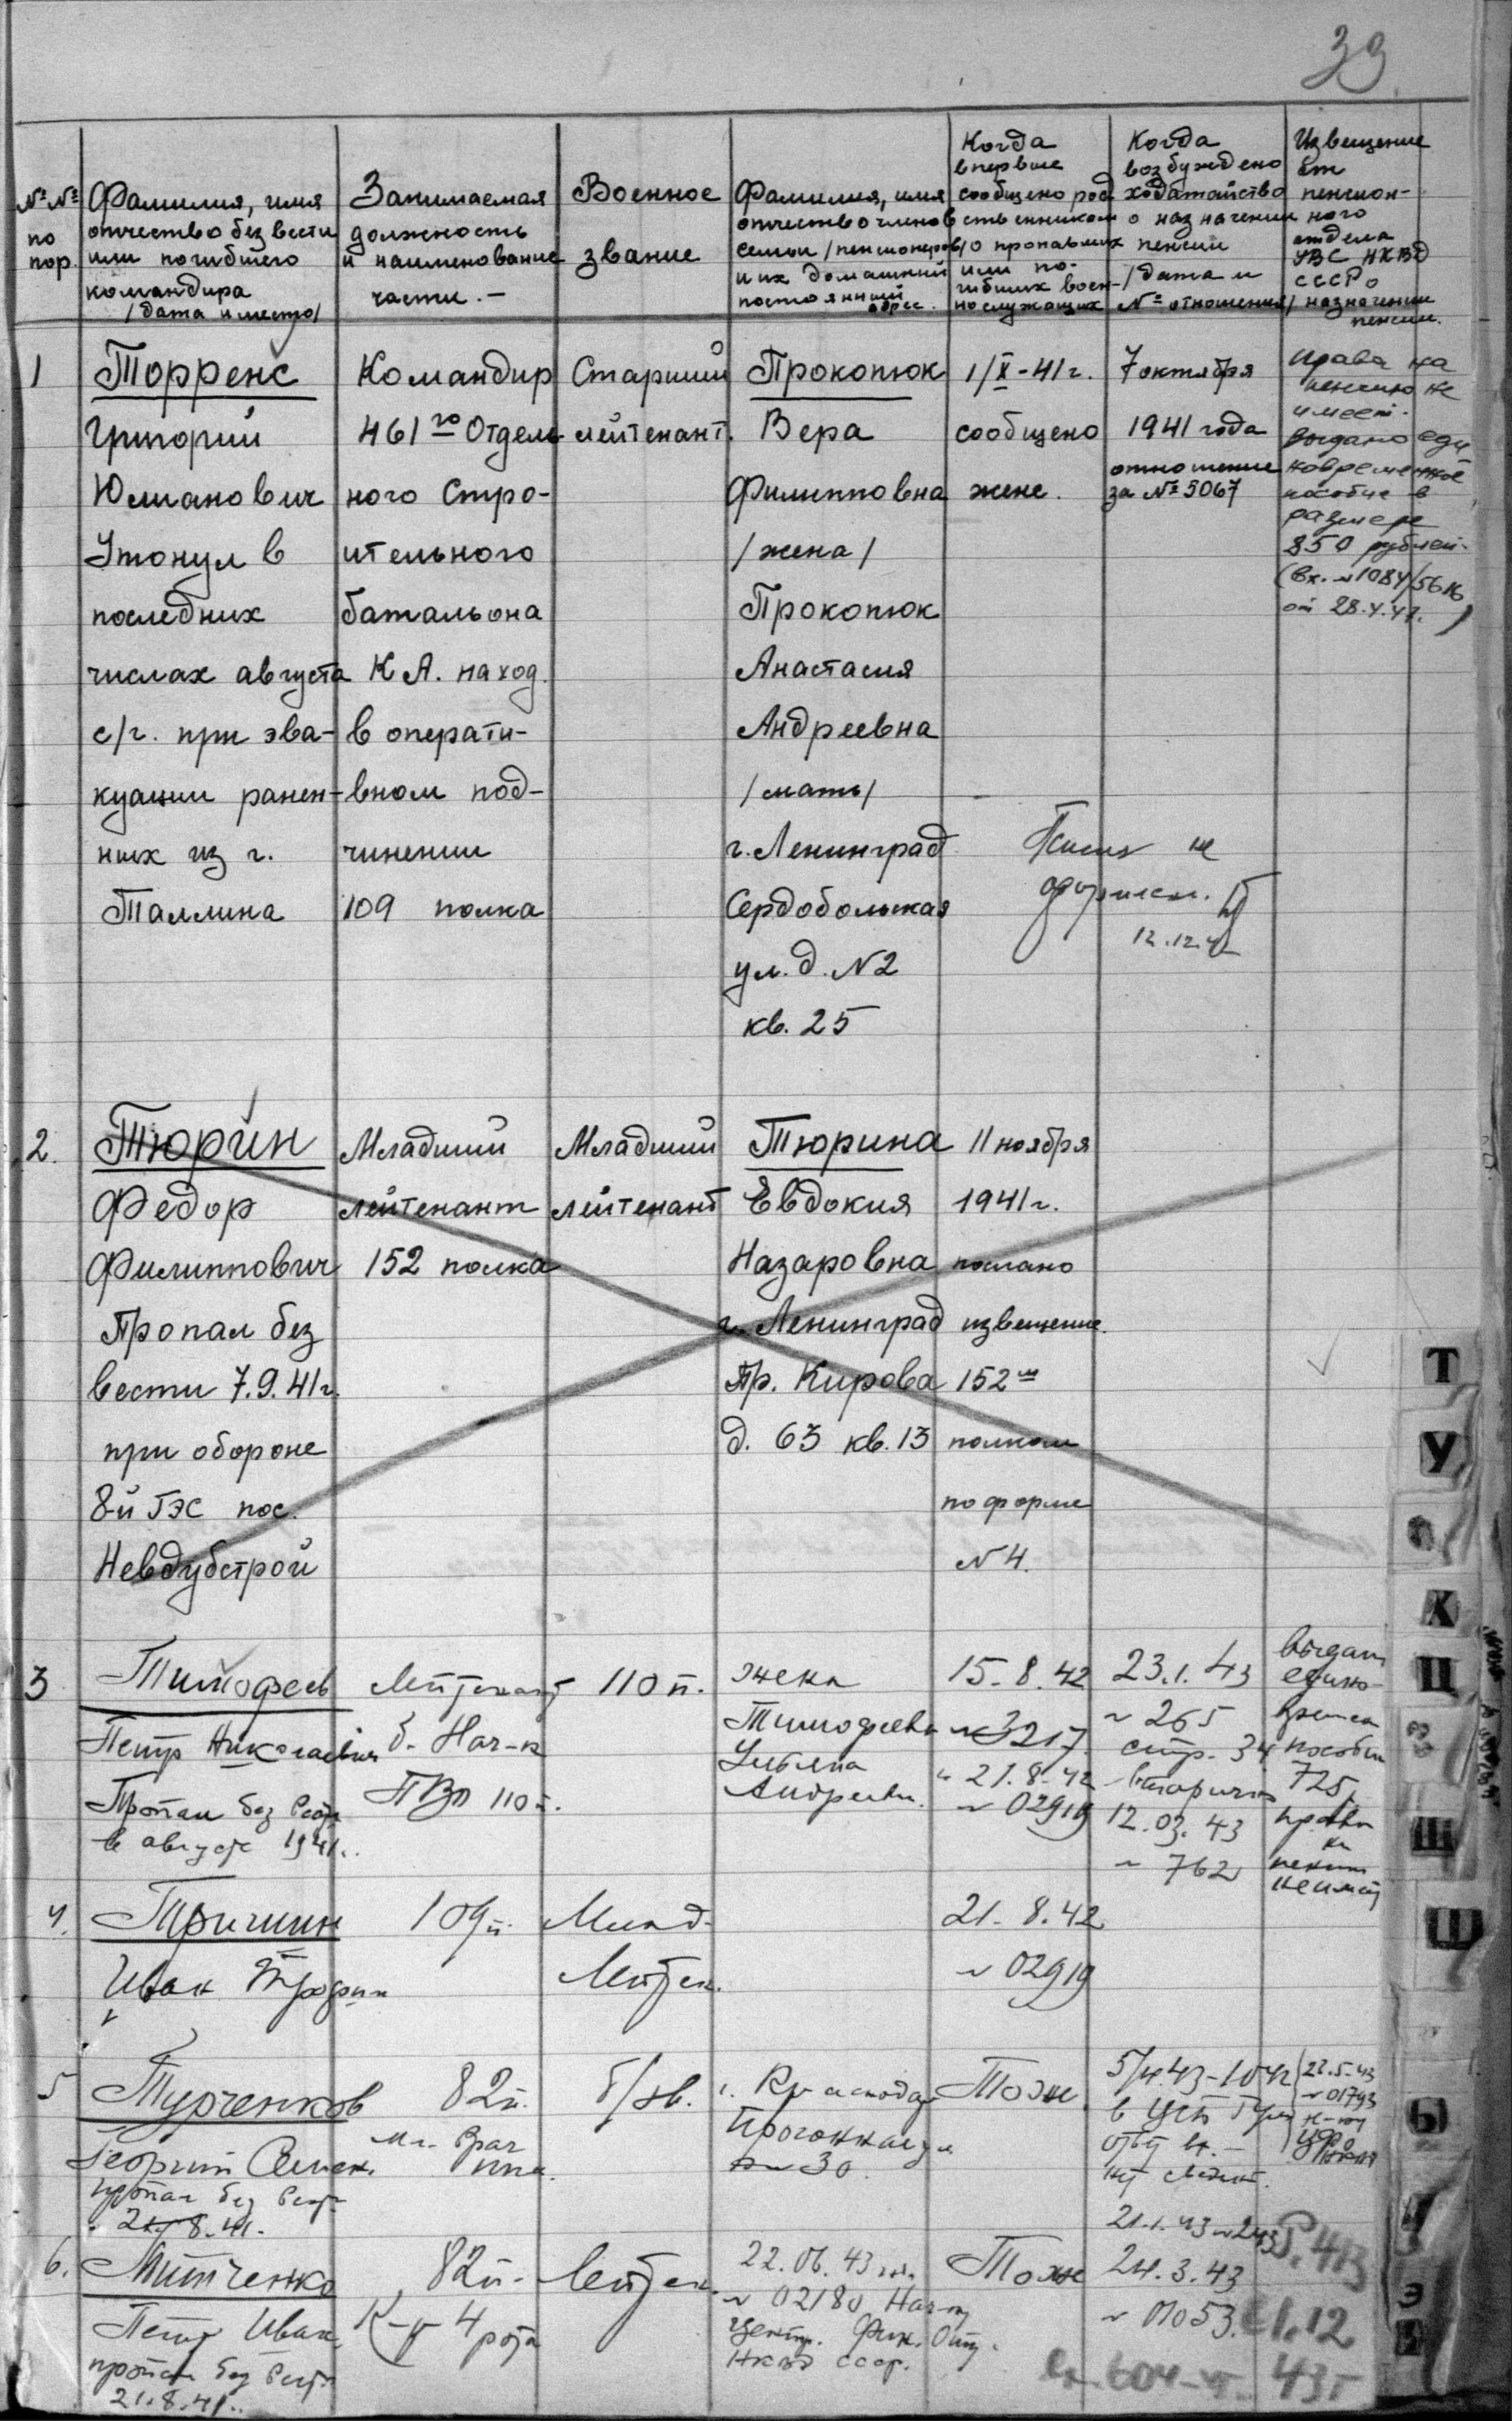 39
№№
по
пор.
Фамилия, имя
отчество без вести
или погибшего
командира
/дата и место/
Занимаемая
должность
и наименование
части.-
Военное
звание
Фамилия, имя
отчество членов
семьи /пенсионеров/
и их домашний
постоянный
адрес.
Когда
впервые
сообщено род
ственникам
о пропавших
или по-
гибших воен-
нослужащих
Когда
возбуждено
ходатайство
о назначении
пенсии
/дата и
№ отношения/
Извещение
от
пенсион-
ного
отдела
УВС НКВД
СССР о
назначении
пенсии.
1
Торренс
Григорий
Юлианович
Утонул в
последних
числах августа
с/г. при эва-
куации ранен-
ных из г.
Таллина
Командир
461го Отдель
ного Стро-
ительного
батальона
КА. наход.
в операти-
вном под-
чинении
109 полка
Старший
лейтенант.
Прокопюк
Вера
Филипповна
/жена/
Прокопюк
Анастасия
Андреевна
/мать/
г. Ленинград
Сердобольская
ул. д. №2
кв. 25
1/X-41г.
сообщено
жене.
7 октября
1941 года
отношение
за №5067
Права на
пенсию не
имеет.
выдано еди
новременное
пособие в
размере
850 рублей.
(вх. №1084/56
12.12.42
2.
Тюрин
Федор
Филиппович
Пропал без
вести 7.9.41г.
при обороне
8-й ГЭС пос.
Невдубстрой
Младший
лейтенант
152 полка
Младший
лейтенант
Тюрина
Евдокия
Назаровна
г. Ленинград
Пр. Кирова
д. 63 кв. 13
11 ноября
1941г.
послано
извещение.
152м
полком
по форме
№4.
3
Тимофеев
Петр Николаевич
Пропал без вести
в августе 1941г.
Лейтенант
б. Нач-к
110 п.
110 п.
жена
Тимофеева
Андреевн.
15.8.42
№ 3217
21.8.42
№ 02919
23.1.43
№ 265
стр. 34
вторично
12.03.43
№ 762
выдано
едино-
времен
пособие
725
права
на
пенсию
не имеет
4.
Тричин
Иван
109 п.
Млад.
Лейтен.
21.8.42
№ 02919
5
Турченков
Георгий Семен.
пропал без вест.
8.41.
82 п.
мл. врач
б/зв.
г. Краснодар
№ 30
То же
23.5.43
№ 01793
21.1.43 № 243
6.
Титченко
Петр Иван.
пропал без вест.
21.8.41.
82 п.
К-р 4 роты
Лейтен.
22.06.43
№ 02180 Нач-ку
Центр. Фин. Отд.
НКВД СССР.
То же
24.3.43
№ 01053
Т
У
Ф
Х
Ц
Ч
Ш
Щ
Ы
Э